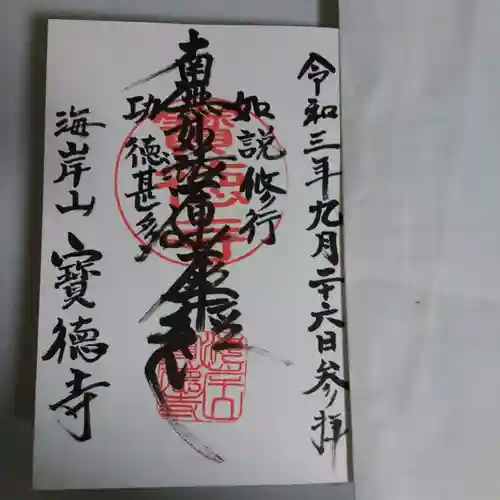 令和三年九月二十六日参拝
如説修行
南無妙法蓮華経
功徳甚多
海岸山 寶德寺
寶德寺